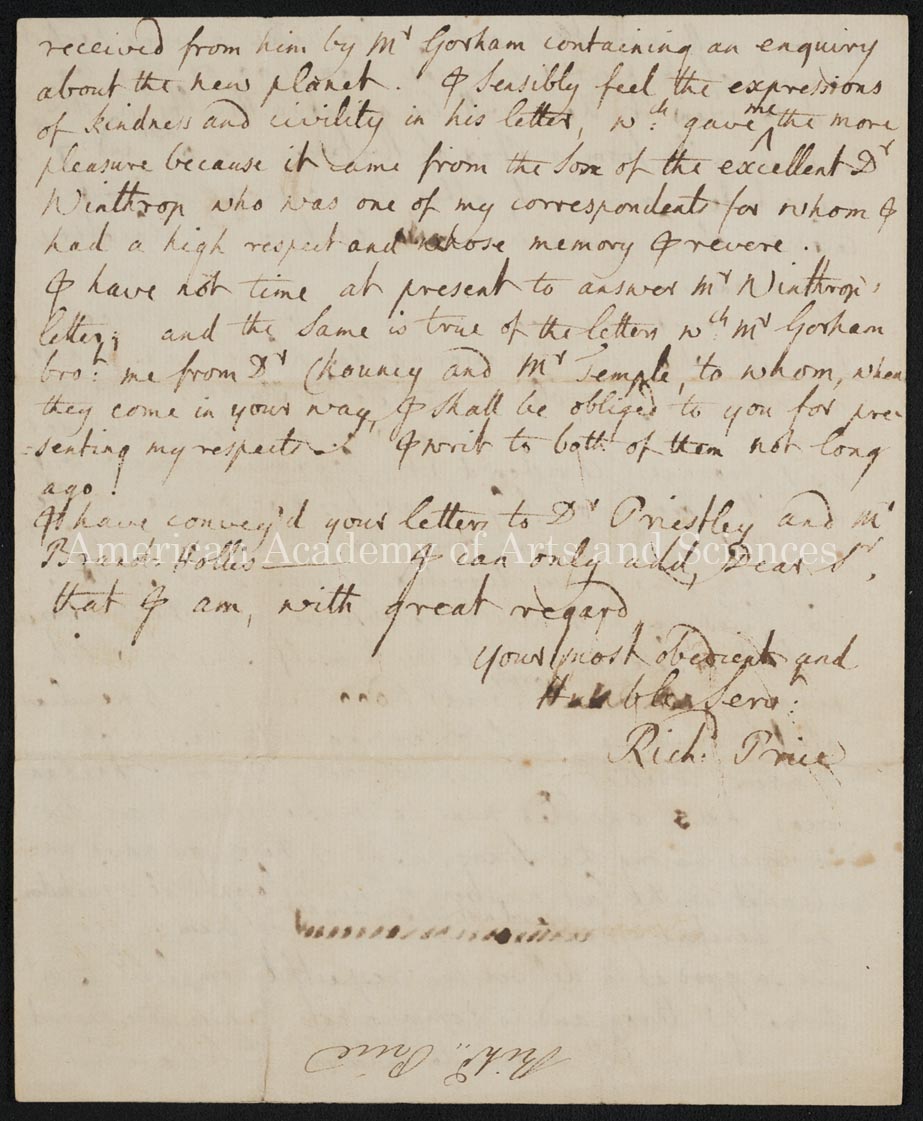 received from him by Mr Gorham containing an enquiry
about the new planet. I sensibly feel the expressions
of kindness and civility in his letter, wch: gave me the more
pleasure because it came from the Son of the excellent Dr
Winthrop who was one of my correspondents for whom I
had a high respect and whose memory I revere.
I have not time at present to answer Mr Winthrop's
letter; and the same is true of the letters wch Mr Gorham
bro:t me from Dr Chauncy and Mr Temple, to whom, when
they come in your way, I shall be obliged to you for pre-
-senting my respects. I writ to both of them not long
ago.
I have convey'd your letters to Dr Priestley and Mr
Brand Hollis —— I can only add, Dear Sr,
that I am, with great regard
your most obedient and
Humble Serv:t
Rich:d Price
Rich:d Price
American Academy of Arts and Sciences